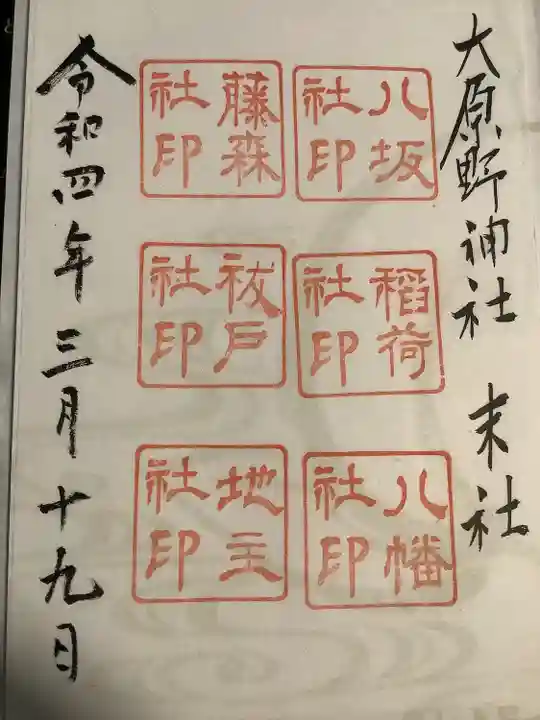 大原野神社 末社
八坂
社印
稲荷
社印
八幡
社印
藤森
社印
祓戸
社印
地主
社印
令和四年三月十九日